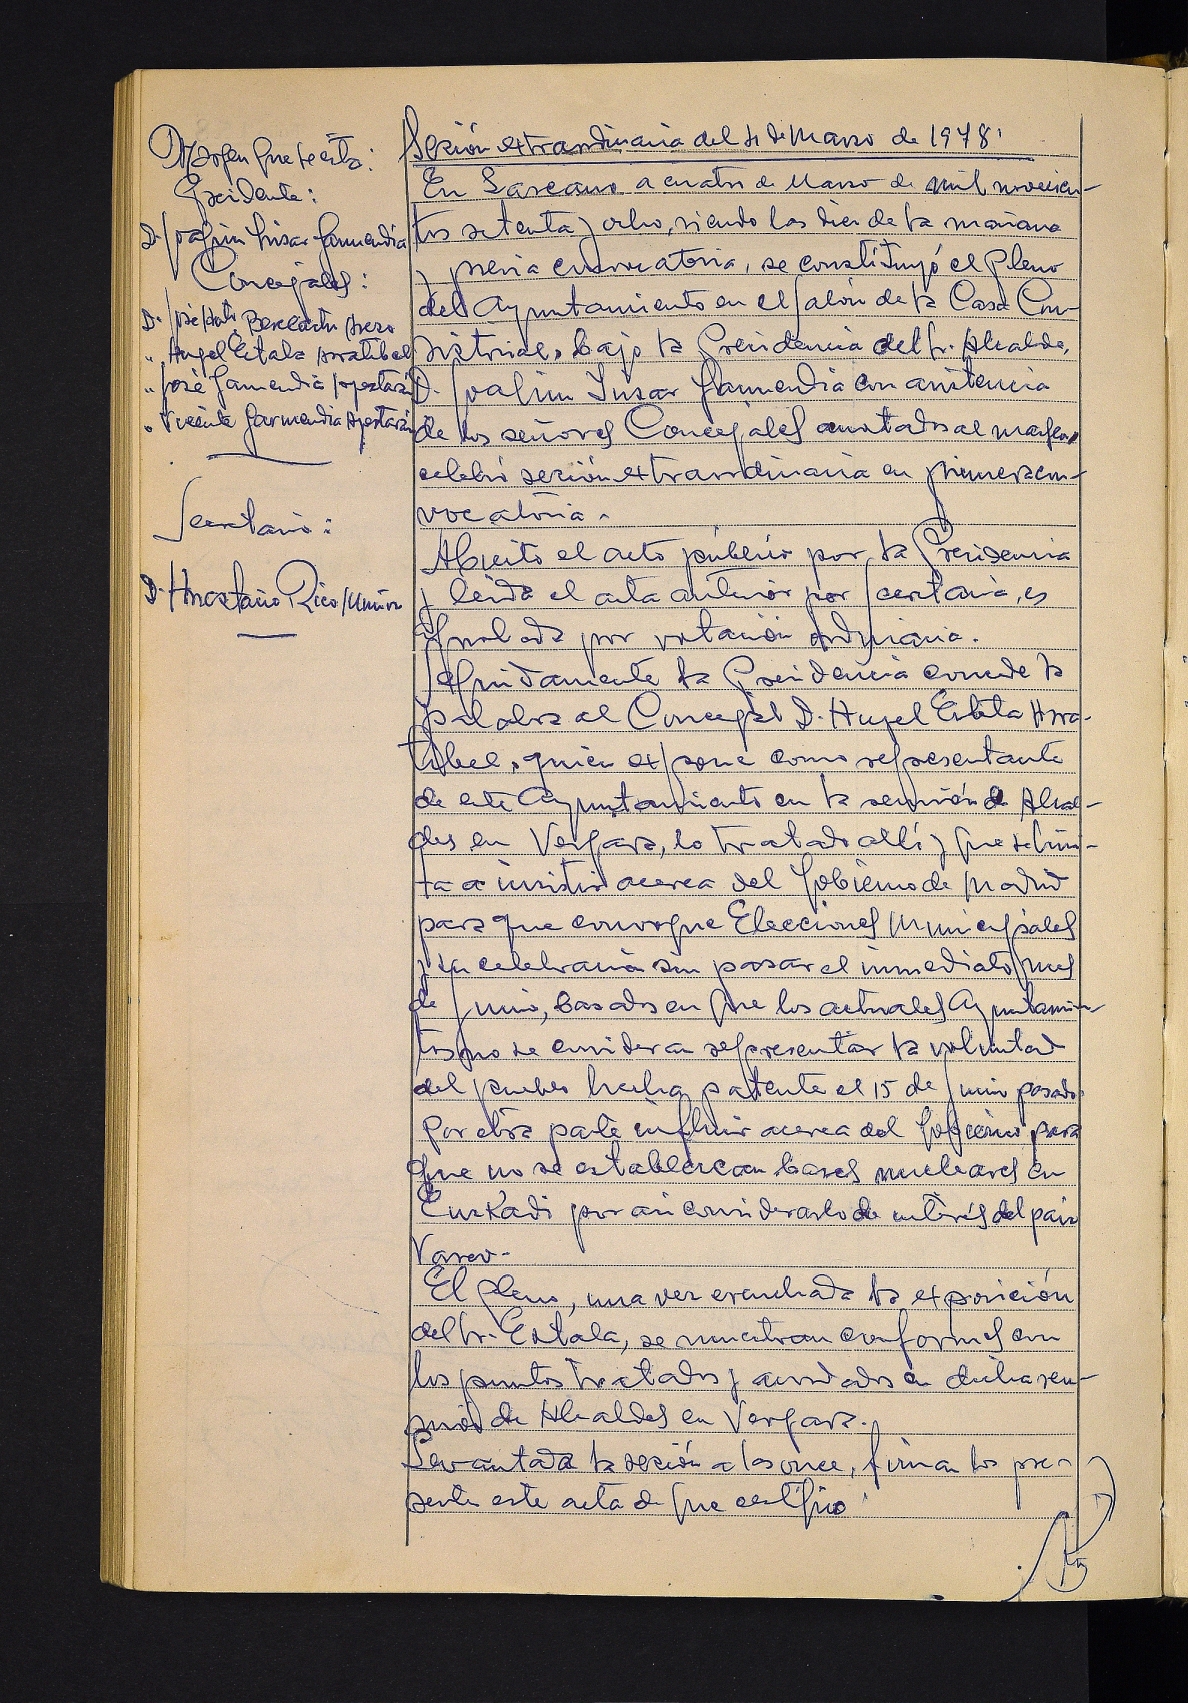 Margen que se cita:
Presidente:
D. Joaquín Insar Garmendia
Concejales:
D. José Anto. Berecartu
" Angel Estala Arratibel
" José Garmendia Apestarán
" Vicente Garmendia Apestarán
Secretario:
D. Anastasio Rico Muñoz
Sesión extraordinaria del 4 de Marzo de 1978
En Lazcano a cuatro de Marzo de mil novecien-
tos setenta y ocho, siendo las diez de la mañana
y previa convocatoria, se constituyó el Pleno
del Ayuntamiento en el Salón de la Casa Con-
sistorial, bajo la Presidencia del Sr. Alcalde,
D. Joaquín Insar Garmendia con asistencia
de los señores Concejales anotados al margen,
celebró sesión extraordinaria en primera con-
vocatoria.
Abierto el acto público por la Presidencia
y leída el acta anterior por Secretaría, es
aprobada por votación ordinaria.
Seguidamente la Presidencia concede la
palabra al Concejal D. Angel Estala Arra-
tibel, quien expone como representante
de este Ayuntamiento en la reunión de Alcal-
des en Vergara, lo tratado allí y que se limi-
ta a insistir acerca del Gobierno de Madrid
para que convoque Elecciones Municipales
y su celebración sin pasar el inmediato mes
de Junio, basados en que los actuales Ayuntamien-
tos no se consideran representar la voluntad
del pueblo hecha patente el 15 de Junio pasado.
Por otra parte influir acerca del Gobierno para
que no se establezcan bases nucleares en
Euzkadi por así considerarlo de interés del país
Vasco.
El Pleno, una vez escuchada la exposición
del Sr. Estala, se muestran conformes con
los puntos tratados y acordados en dicha reu-
nión de Alcaldes en Vergara.
Levantada la sesión a las once, firman los pre-
sentes este acta de que certifico